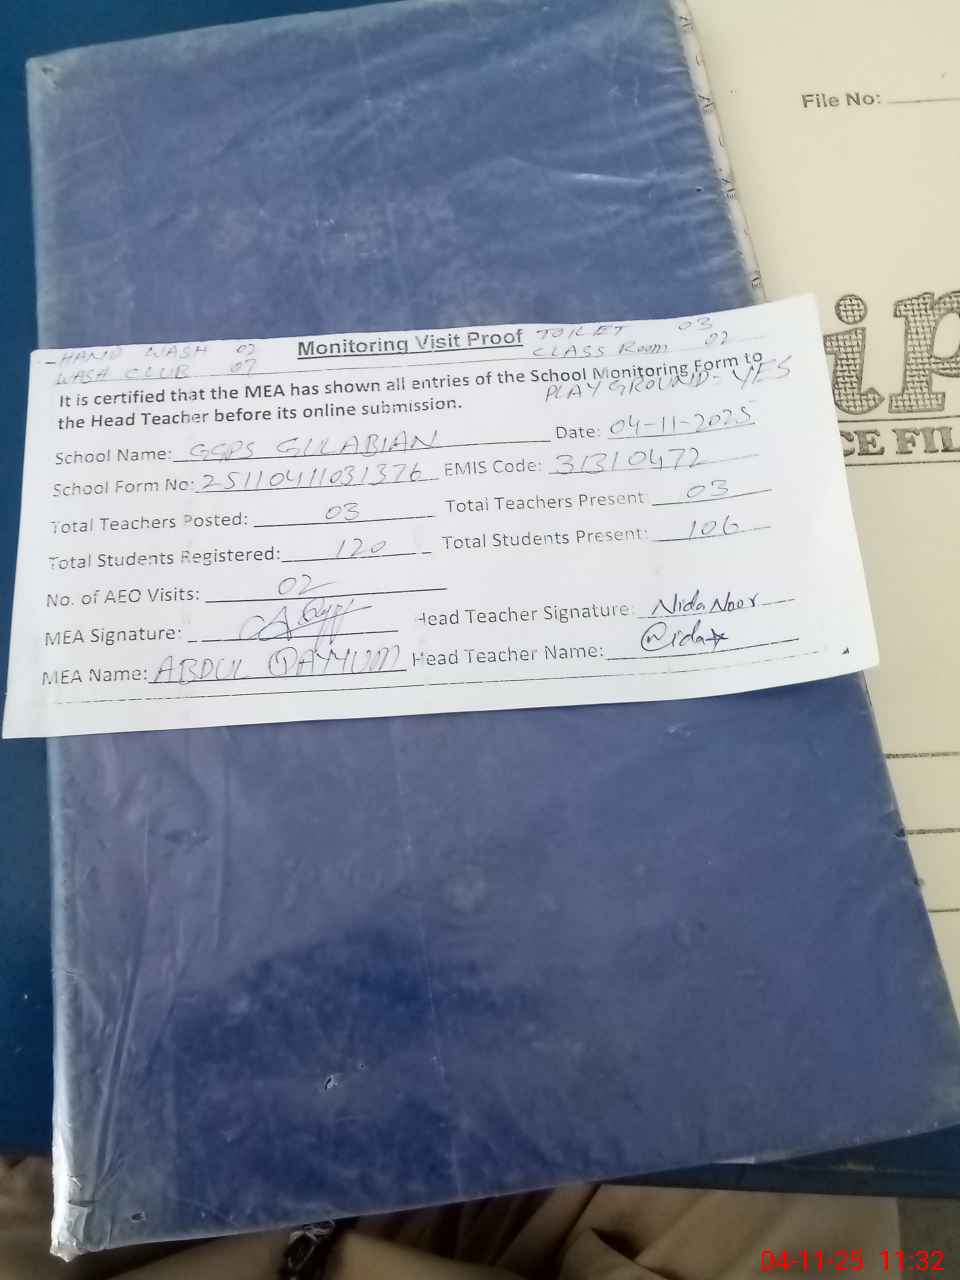 File No:
HAND WASH 02
Monitoring Visit Proof
TOILET 03
WASH CLUB 07
CLASS ROOM 02
PLAY GROUND- YES
It is certified that the MEA has shown all entries of the School Monitoring Form to
the Head Teacher before its online submission.
School Name: GGPS GULABIAN Date: 04-11-2025
School Form No: 25110411031376 EMIS Code: 31310472
Total Teachers Posted: 03 Total Teachers Present: 03
Total Students Registered: 120 Total Students Present: 106
No. of AEO Visits: 02
MEA Signature: Head Teacher Signature: Nida Noor
MEA Name: ABDUL QAYYUM Head Teacher Name: Nida
04-11-25 11:32